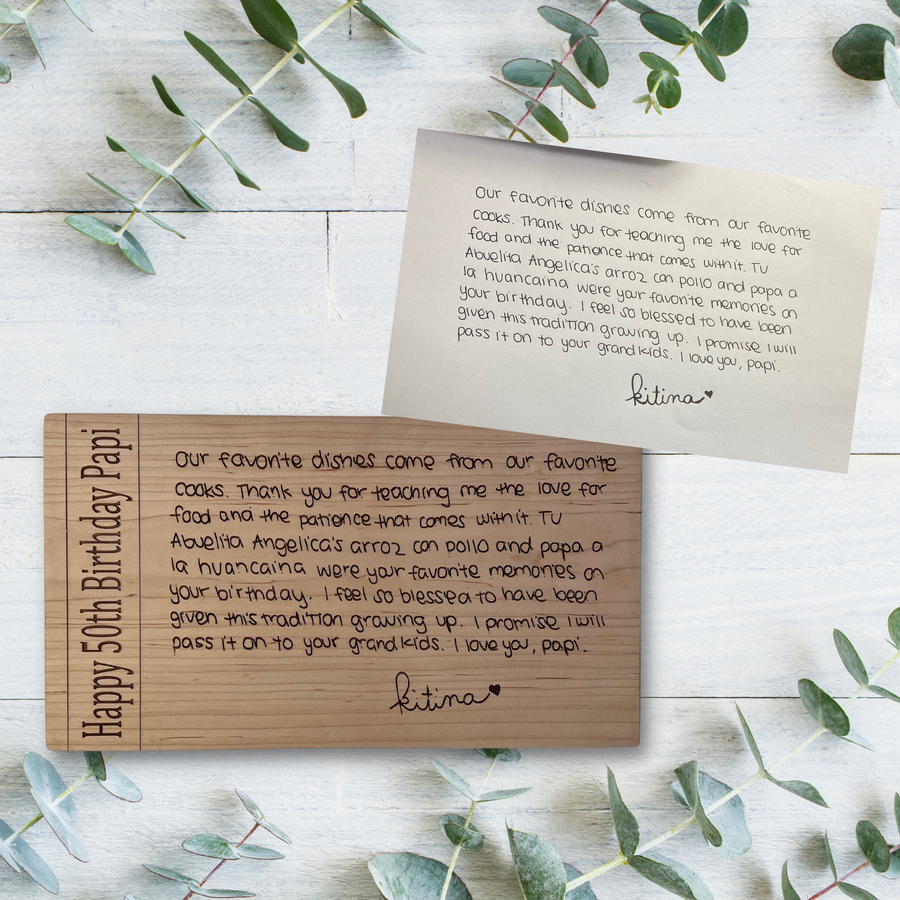 Our favorite dishes come from our favorite
cooks. Thank you for teaching me the love for
food and the patience that comes with it. Tu
Abuelita Angelica's arroz con pollo and papa a
la huancaina were your favorite memories on
your birthday. I feel so blessed to have been
given this tradition growing up. I promise I will
pass it on to your grandkids. I love you, papi.
kitina
Happy 50th Birthday Papi
Our favorite dishes come from our favorite
cooks. Thank you for teaching me the love for
food and the patience that comes with it. Tu
Abuelita Angelica's arroz con pollo and papa a
la huancaina were your favorite memories on
your birthday. I feel so blessed to have been
given this tradition growing up. I promise I will
pass it on to your grandkids. I love you, papi.
kitina